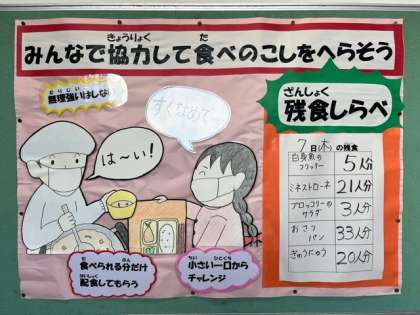 きょうりょく た
みんなで協力して食べのこしをへらそう
むりじ
無理強いはしない
すくなめで
は〜い!
ざんしょく
残食しらべ
7日(木)の残食
白身魚の
フリッター 5人分
ミネストローネ 21人分
ブロッコリーの
サラダ 3人分
おさつ
パン 33人分
ぎゅうにゅう 20人分
た ぶん
食べられる分だけ
はいしょく
配食してもらう
ちい ひとくち
小さい一口から
チャレンジ